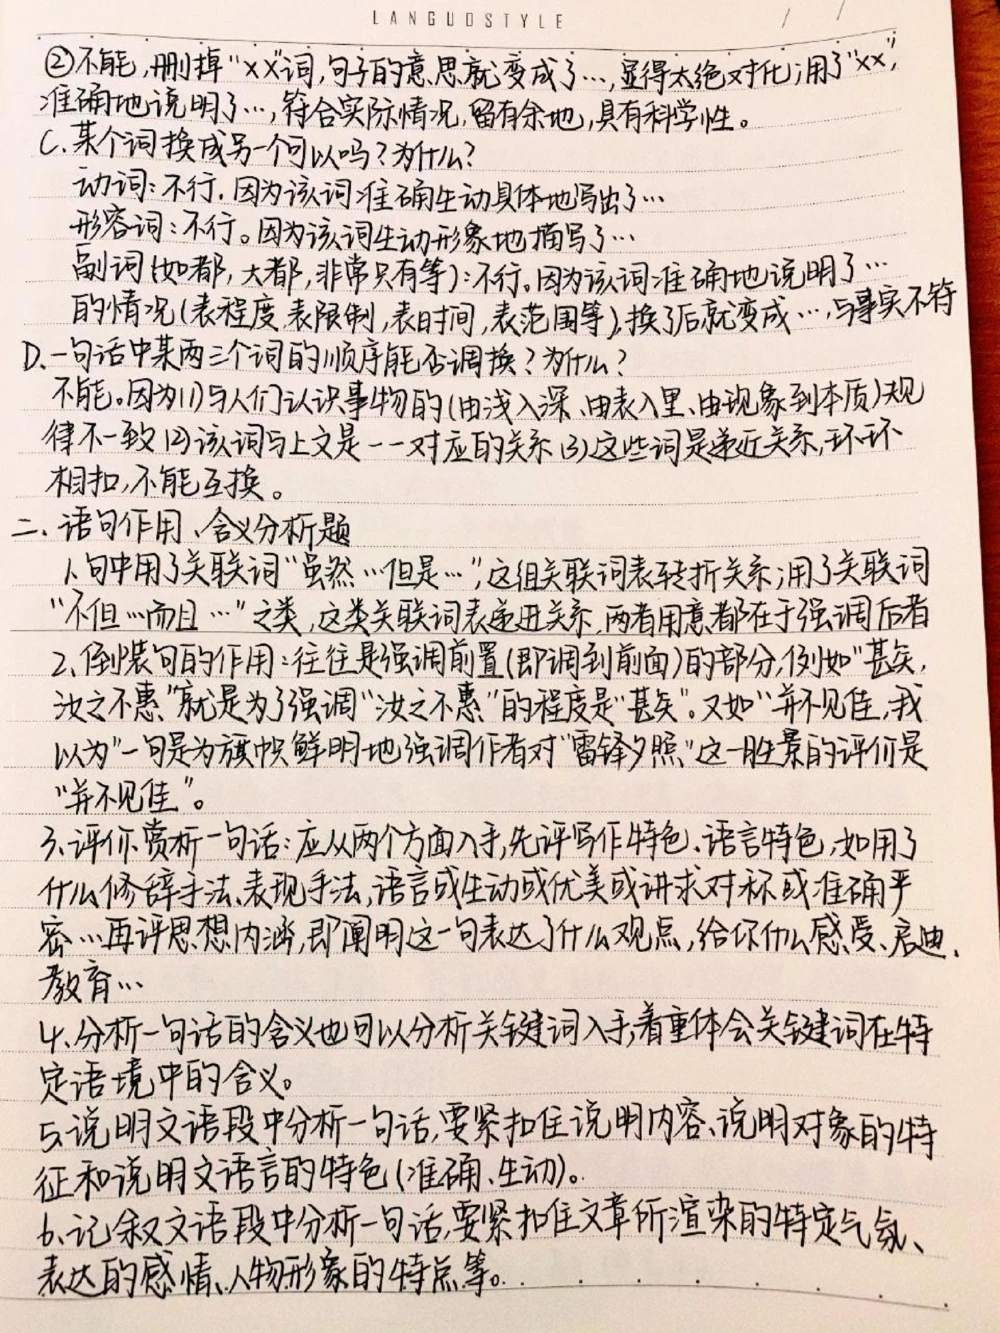 LANGUOSTYLE
②不能,删掉"××"词,句子的意思就变成了…,显得太绝对化;用了"××",
准确地说明了…,符合实际情况,留有余地,具有科学性。
C.某个词换成另一个可以吗?为什么?
动词:不行.因为该词准确生动具体地写出了…
形容词:不行。因为该词生动形象地描写了…
副词(如都,大都,非常只有等):不行。因为该词准确地说明了…
的情况(表程度,表限制,表时间,表范围等),换了后就变成…,与事实不符
D.一句话中某两三个词的顺序能否调换?为什么?
不能。因为(1)与人们认识事物的(由浅入深、由表入里、由现象到本质)规
律不一致(2)该词与上文是一一对应的关系(3)这些词是递近关系,环环
相扣,不能互换。
二、语句作用、含义分析题
1、句中用了关联词"虽然…但是…",这组关联词表转折关系;用了关联词
"不但…而且…"之类,这类关联词表递进关系,两者用意都在于强调后者
2、倒装句的作用:往往是强调前置(即调到前面)的部分,例如"甚矣,
汝之不惠"就是为了强调"汝之不惠"的程度是"甚矣"。又如"并不见佳,我
以为"一句是为旗帜鲜明地强调作者对"雷锋夕照"这一胜景的评价是
"并不见佳"。
3、评价、赏析一句话:应从两个方面入手,先评写作特色、语言特色,如用了
什么修辞手法、表现手法,语言或生动或优美或讲求对称或准确严
密…再评思想内涵,即阐明这一句表达了什么观点,给你什么感受、启迪、
教育…
4、分析一句话的含义也可以分析关键词入手,着重体会关键词在特
定语境中的含义。
5、说明文语段中分析一句话,要紧扣住说明内容、说明对象的特
征和说明文语言的特色(准确、生动)。
6、记叙文语段中分析一句话,要紧扣住文章所渲染的特定气氛、
表达的感情、人物形象的特点等。